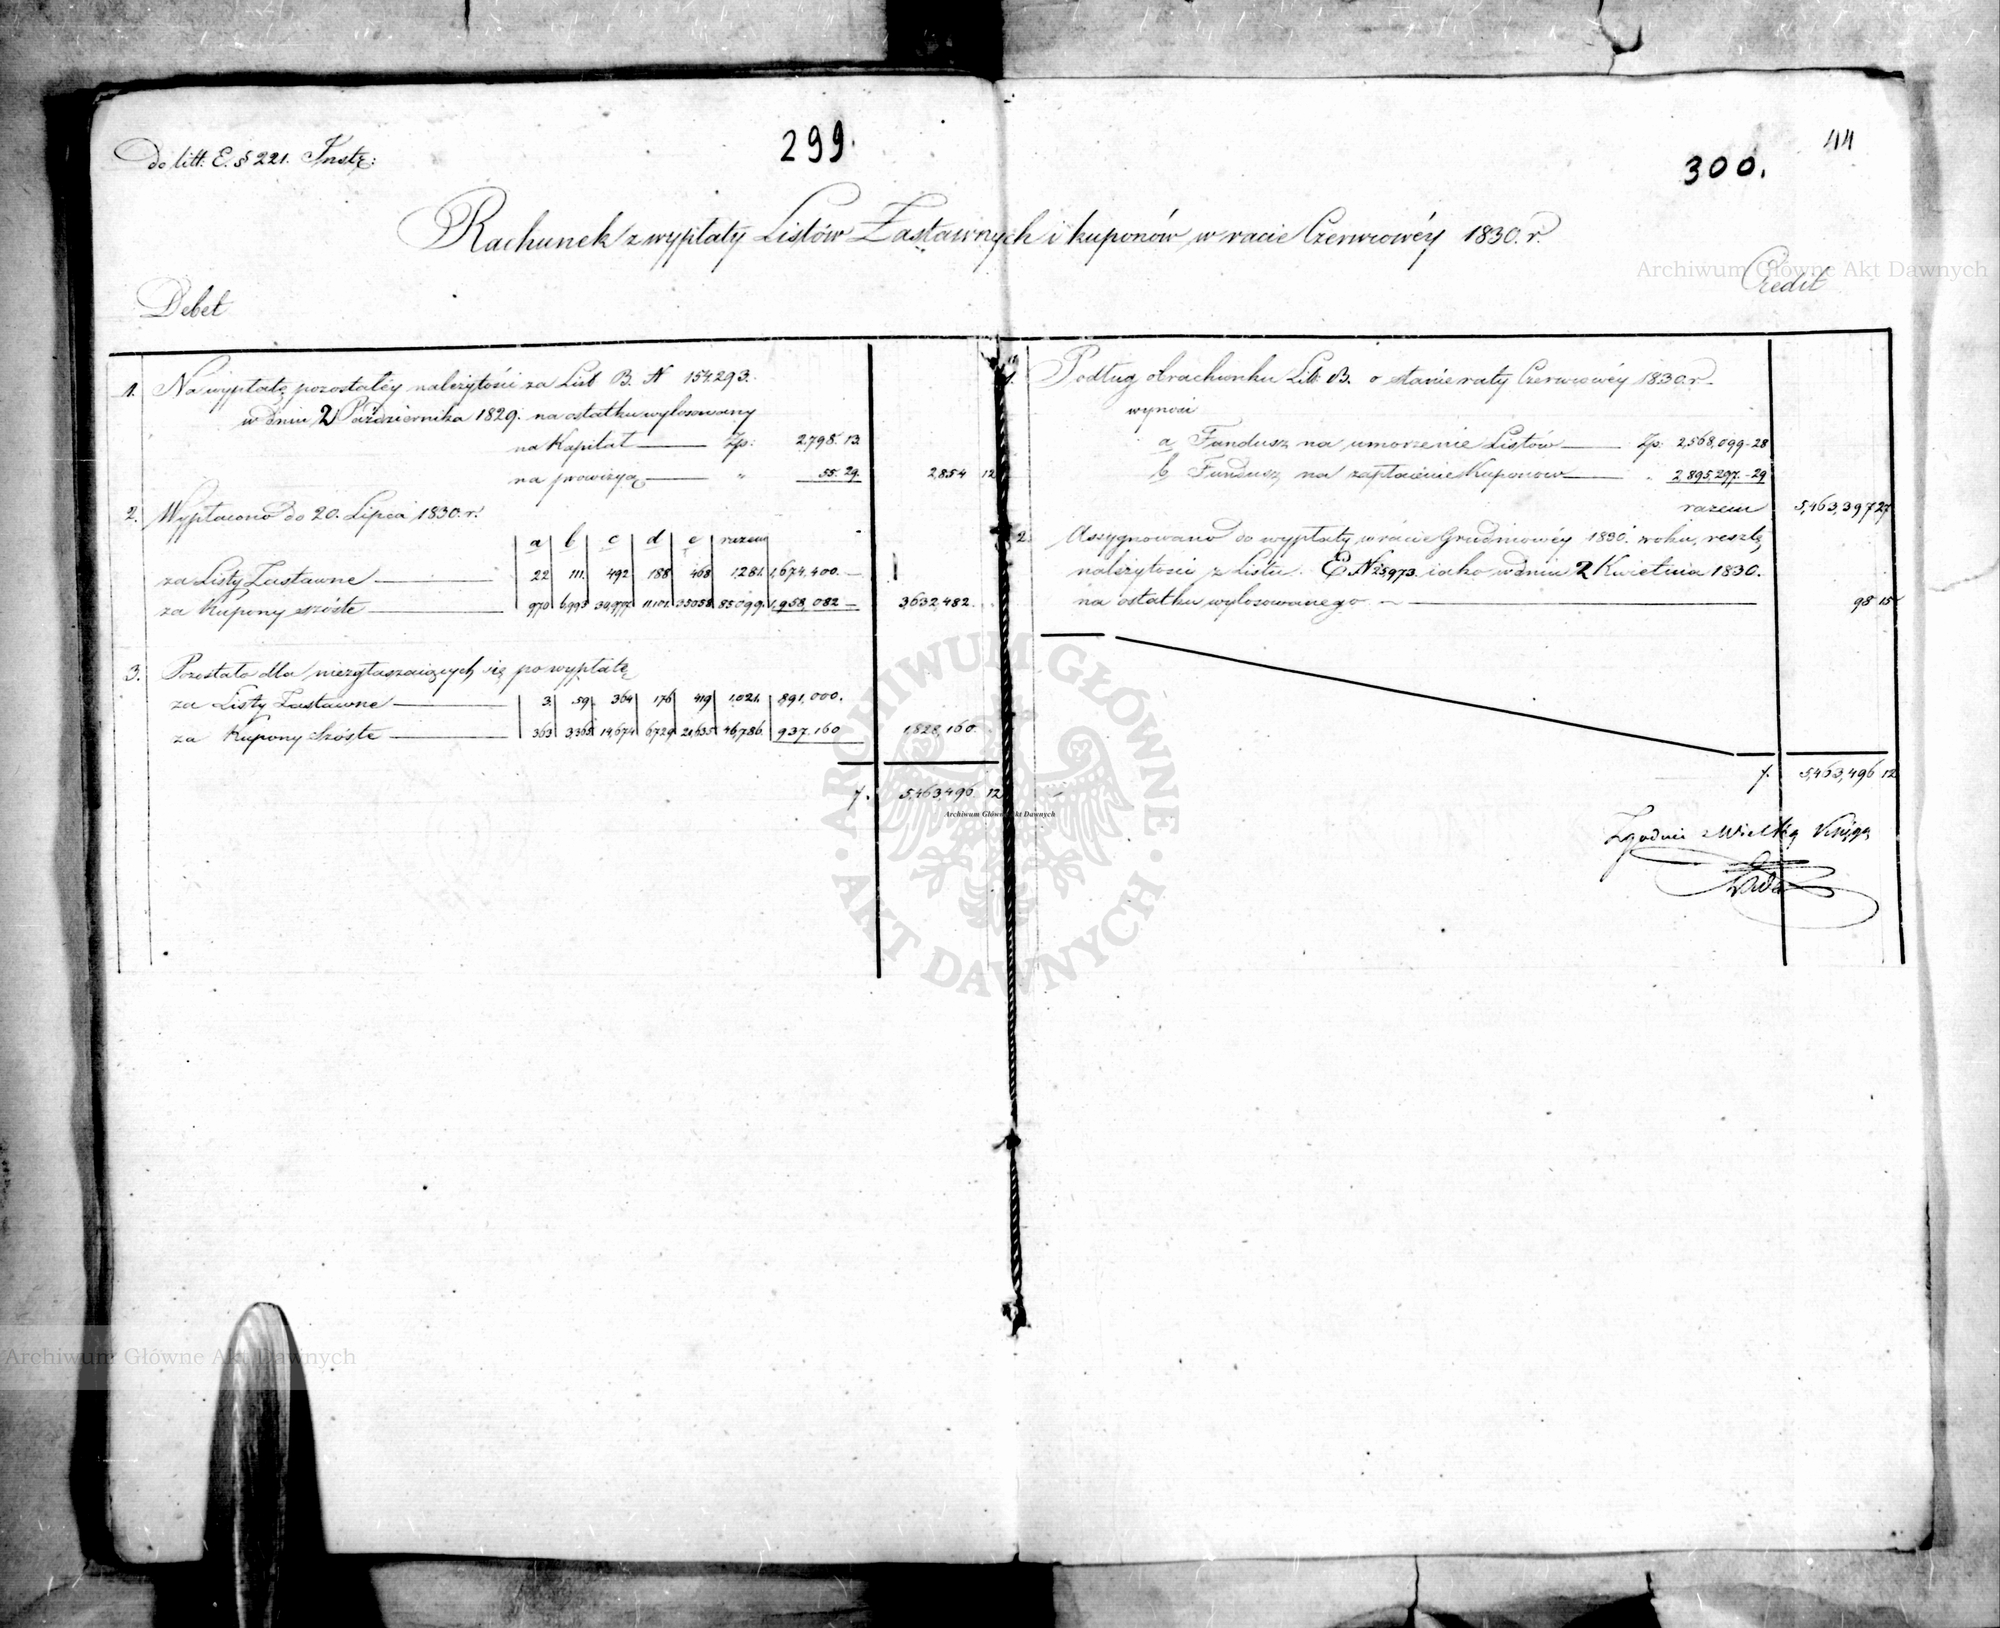 299.
do litt. E. § 221. Instr:
44
300.
Rachunek z wypłaty Listów Zastawnych i kuponów w racie Czerwcowéy 1830. r.
Debet
Credit
1. Na wypłatę pozostałéy należytości za List B. N 154293.
w dniu 2 Października 1829. na ostatku wylosowany
na Kapitał Zp: 2.798. 13.
na prowizyą " 55. 29. 2,854 12
2. Wypłacono do 20. Lipca 1830. r.
a b c d e razem
za Listy Zastawne 22 111. 492 188 468 1,281. 1,674,400.—
za Kupony szóste 970 6,993 30,977 11,101. 35058. 85099. 1,958,082— 3,632,482.
3. Pozostało dla niezgłaszaiących się po wypłatę
za Listy Zastawne 3. 59. 364 176 419 1,021. 891,000.
za Kupony Szóste 363 3,365 14,674 6729 21,635 46,786. 937,160 1,828,160.
5,463,496. 12
1. Podług obrachunku Litt. B. o stanie raty Czerwcowéy 1830. r.
wynosi
a Fundusz na umorzenie Listów Zp: 2,568,099-28
b Fundusz na zapłacenie Kuponow " 2,895,297.-29
razem 5,463,397 27
2. Assygnowano do wypłaty w racie Grudniowéy 1830. roku, resztę
należytości z Listu E N 25973. iako w dniu 2 Kwietnia 1830.
na ostatku wylosowanego 98 15
5,463,496 12
Zgodni z Wielką Xięgą
Archiwum Główne Akt Dawnych
Archiwum Główne Akt Dawnych
ARCHIWUM GŁÓWNE · AKT DAWNYCH ·
Archiwum Główne Akt Dawnych